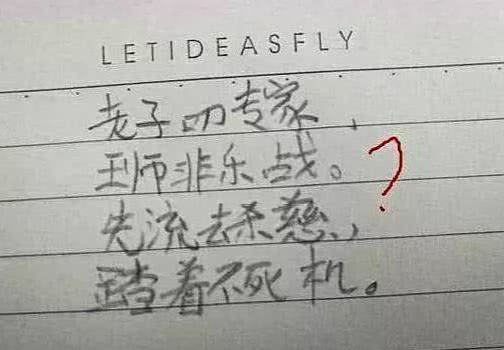 LETIDEASFLY
老子叨专家，
玨师非乐战。
先流去杀慈，
踏着不死机。